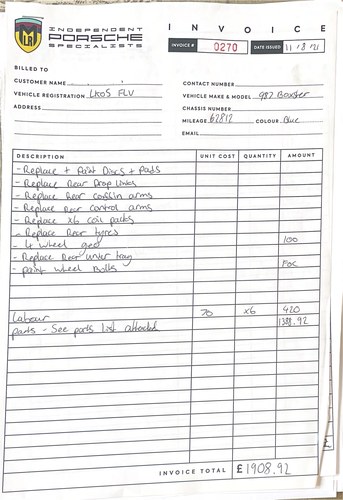 INDEPENDENT
PORSCHE
SPECIALISTS
INVOICE
INVOICE # 0270 DATE ISSUED 11/8/21
BILLED TO
CUSTOMER NAME
VEHICLE REGISTRATION LK05 FLV
ADDRESS
CONTACT NUMBER
VEHICLE MAKE & MODEL 987 Boxster
CHASSIS NUMBER
MILEAGE 62812 COLOUR Blue
EMAIL
DESCRIPTION UNIT COST QUANTITY AMOUNT
- Replace + Paint Discs + Pads
- Replace Rear Drop Links
- Replace Rear coffin arms
- Replace Rear control arms
- Replace x6 coil packs
- Replace Rear tyres
- 4 wheel geo 100
- Replace Rear under tray
- paint wheel Bolts FOC
Labour 70 x6 420
parts - See parts list attached 1388.92
INVOICE TOTAL £1908.92